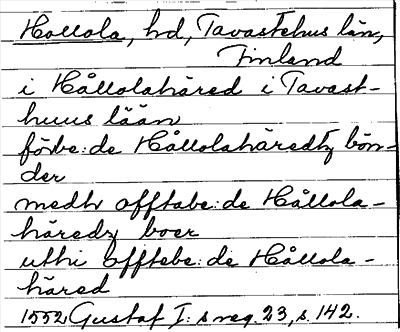 Hollola, hd, Tavastehus län,
Finland
i Hållolahäred i Tavast-
huus lään
förbe:de Hållolahäredtz bön-
der
medtr offtabe:de Hållola-
häredz boer
uthi offtebe:de Hållola-
häred
1552 Gustaf I:s reg. 23, s. 142.